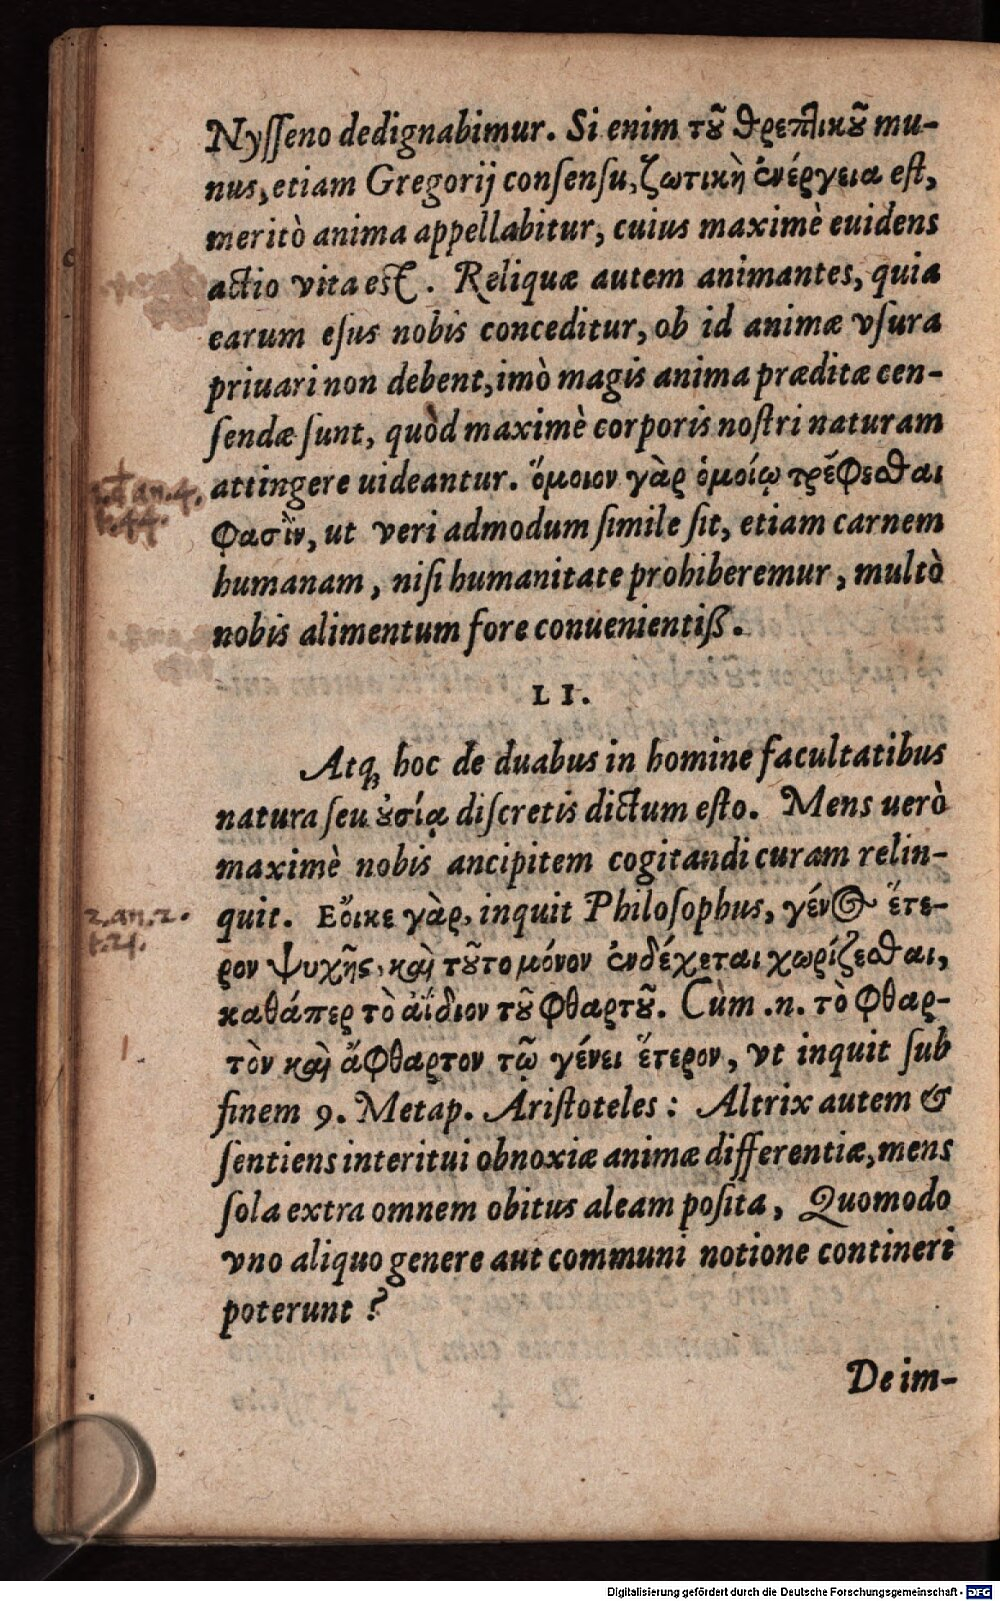 Nyſſeno dedignabimur. Si enim τȣ͂ θρεπτικȣ͂ mu-
nus, etiam Gregorij conſenſu, ζωτικὴ ἐνέργεια eſt,
meritò anima appellabitur, cuius maximè euidens
actio vita est. Reliquæ autem animantes, quia
earum eſus nobis conceditur, ob id animæ vſura
priuari non debent, imò magis anima præditæ cen-
ſendæ ſunt, quòd maximè corporis noſtri naturam
attingere uideantur. ὅμοιον γὰρ ὁμοίῳ τρέφεσθαι
φασὶν, ut veri admodum ſimile ſit, etiam carnem
humanam, niſi humanitate prohiberemur, multò
nobis alimentum fore conuenientiß.
LI.
Atq; hoc de duabus in homine facultatibus
natura ſeu ȣ̓σίᾳ diſcretis dictum eſto. Mens uerò
maximè nobis ancipitem cogitandi curam relin-
quit. Εὄικε γὰρ, inquit Philoſophus, γένος ἕτε-
ρον ψυχῆς, καὶ τȣ͂το μόνον ἐνδέχεται χωρίζεσθαι,
καθάπερ τὸ ἀΐδιον τȣ͂ φθαρτȣ͂. Cùm .n. τὸ φθαρ-
τὸν καὶ ἄφθαρτον τῷ γένει ἕτερον, vt inquit ſub
finem 9. Metap. Ariſtoteles: Altrix autem &
ſentiens interitui obnoxiæ animæ differentiæ, mens
ſola extra omnem obitus aleam poſita, Quomodo
vno aliquo genere aut communi notione contineri
poterunt?
De im-
2. an. 2.
t. 21.
Digitalisierung gefördert durch die Deutsche Forschungsgemeinschaft - DFG